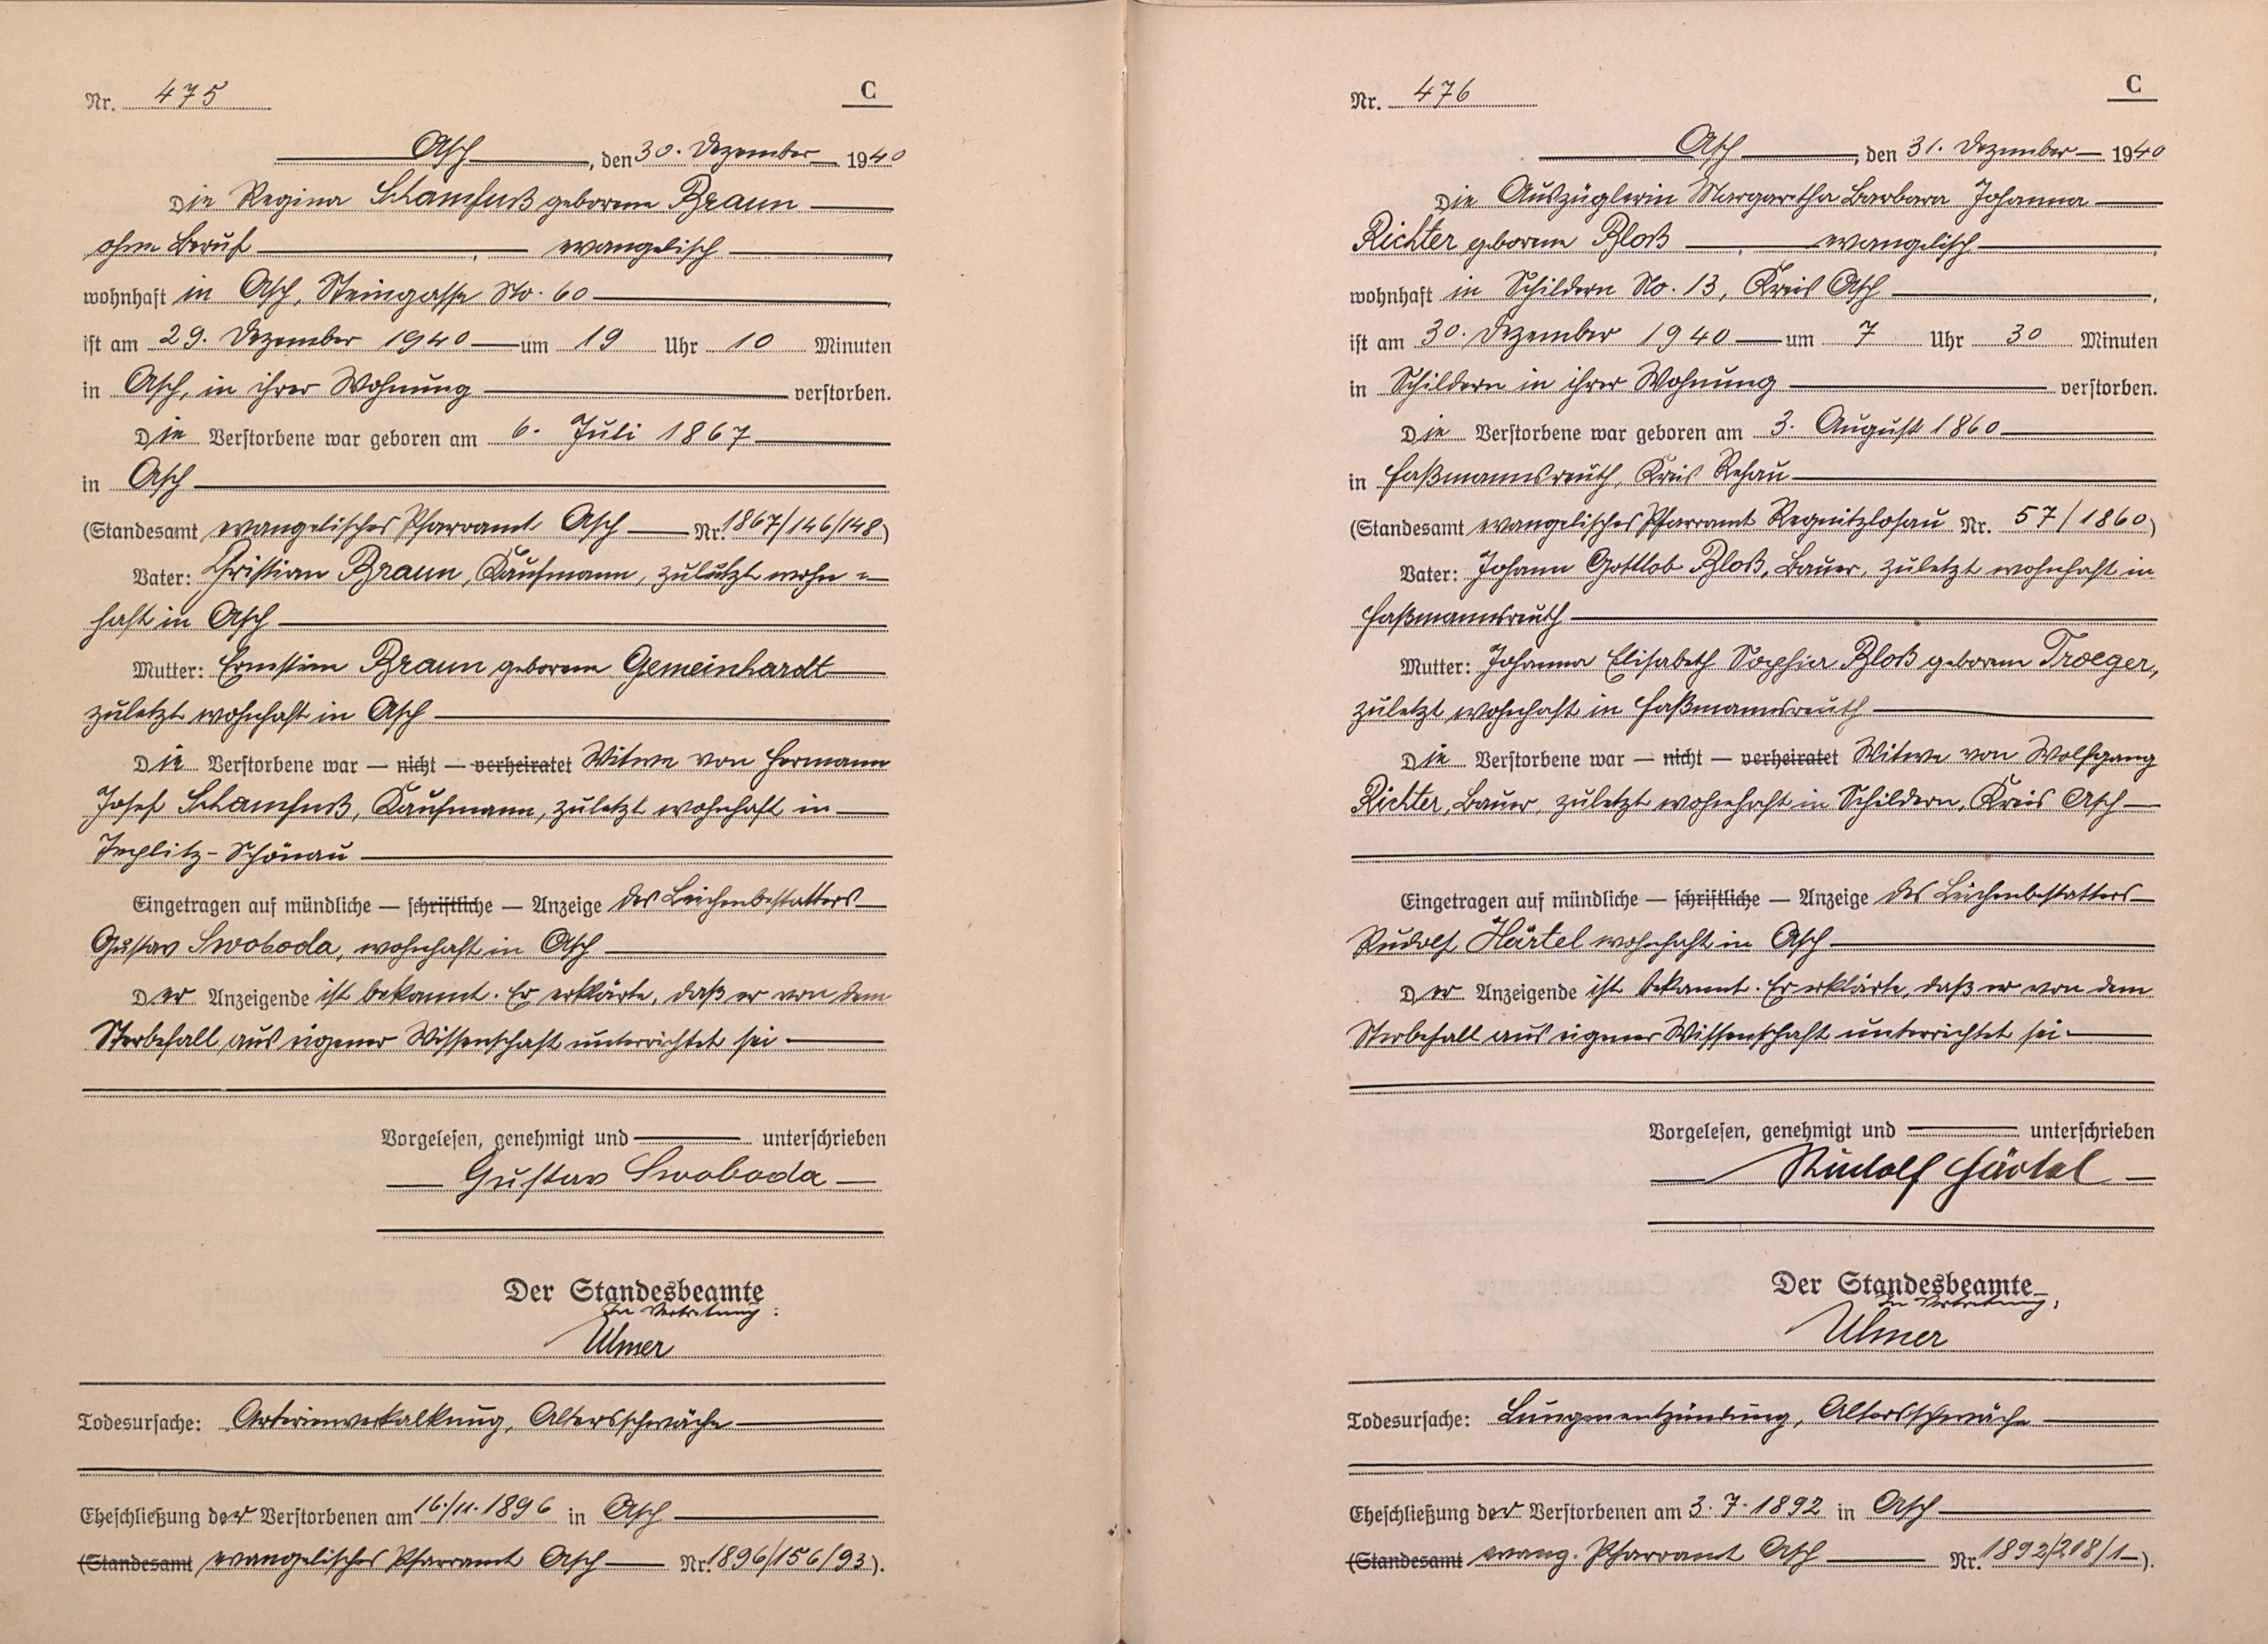 Nr. 475
C
Asch, den 30. Dezember 1940
Die Regina Schamfuß geborene Braun
ohne Beruf, evangelisch,
wohnhaft in Asch, Steingasse No. 60,
ist am 29. Dezember 1940 um 19 Uhr 10 Minuten
in Asch, in ihrer Wohnung verstorben.
Die Verstorbene war geboren am 6. Juli 1867
in Asch
(Standesamt evangelisches Pfarramt Asch Nr. 1867/146/148)
Vater: Christian Braun, Kaufmann, zuletzt wohn=
haft in Asch
Mutter: Ernestine Braun geborene Gemeinhardt
zuletzt wohnhaft in Asch
Die Verstorbene war — nicht — verheiratet Witwe von Hermann
Josef Schamfuß, Kaufmann, zuletzt wohnhaft in
Teplitz-Schönau
Eingetragen auf mündliche — schriftliche — Anzeige des Leichenbestatters
Gustav Swoboda, wohnhaft in Asch
Der Anzeigende ist bekannt. Er erklärte, daß er von dem
Sterbefall aus eigener Wissenschaft unterrichtet sei.
Vorgelesen, genehmigt und unterschrieben
Gustav Swoboda
Der Standesbeamte
In Vertretung:
Ulmer
Todesursache: Arterienverkalkung, Altersschwäche
Eheschließung der Verstorbenen am 16./11. 1896 in Asch
(Standesamt evangelisches Pfarramt Asch Nr. 1896/156/93).
Nr. 476
C
Asch, den 31. Dezember 1940
Die Auszüglerin Margaretha Barbara Johanna
Richter geborene Bloß, evangelisch,
wohnhaft in Schildern No. 13, Kreis Asch,
ist am 30. Dezember 1940 um 7 Uhr 30 Minuten
in Schildern in ihrer Wohnung verstorben.
Die Verstorbene war geboren am 3. August 1860
in Faßmannsreuth, Kreis Rehau
(Standesamt evangelisches Pfarramt Regnitzlosau Nr. 57/1860)
Vater: Johann Gottlob Bloß, Bauer, zuletzt wohnhaft in
Faßmannsreuth
Mutter: Johanna Elisabeth Sophia Bloß geborene Troeger,
zuletzt wohnhaft in Faßmannsreuth
Die Verstorbene war — nicht — verheiratet Witwe von Wolfgang
Richter, Bauer, zuletzt wohnhaft in Schildern, Kreis Asch
Eingetragen auf mündliche — schriftliche — Anzeige des Leichenbestatters
Rudolf Härtel wohnhaft in Asch
Der Anzeigende ist bekannt. Er erklärte, daß er von dem
Sterbefall aus eigener Wissenschaft unterrichtet sei.
Vorgelesen, genehmigt und unterschrieben
Rudolf Härtel
Der Standesbeamte
In Vertretung:
Ulmer
Todesursache: Lungenentzündung, Altersschwäche
Eheschließung der Verstorbenen am 3. 7. 1892 in Asch
(Standesamt evang. Pfarramt Asch Nr. 1892/218/1).